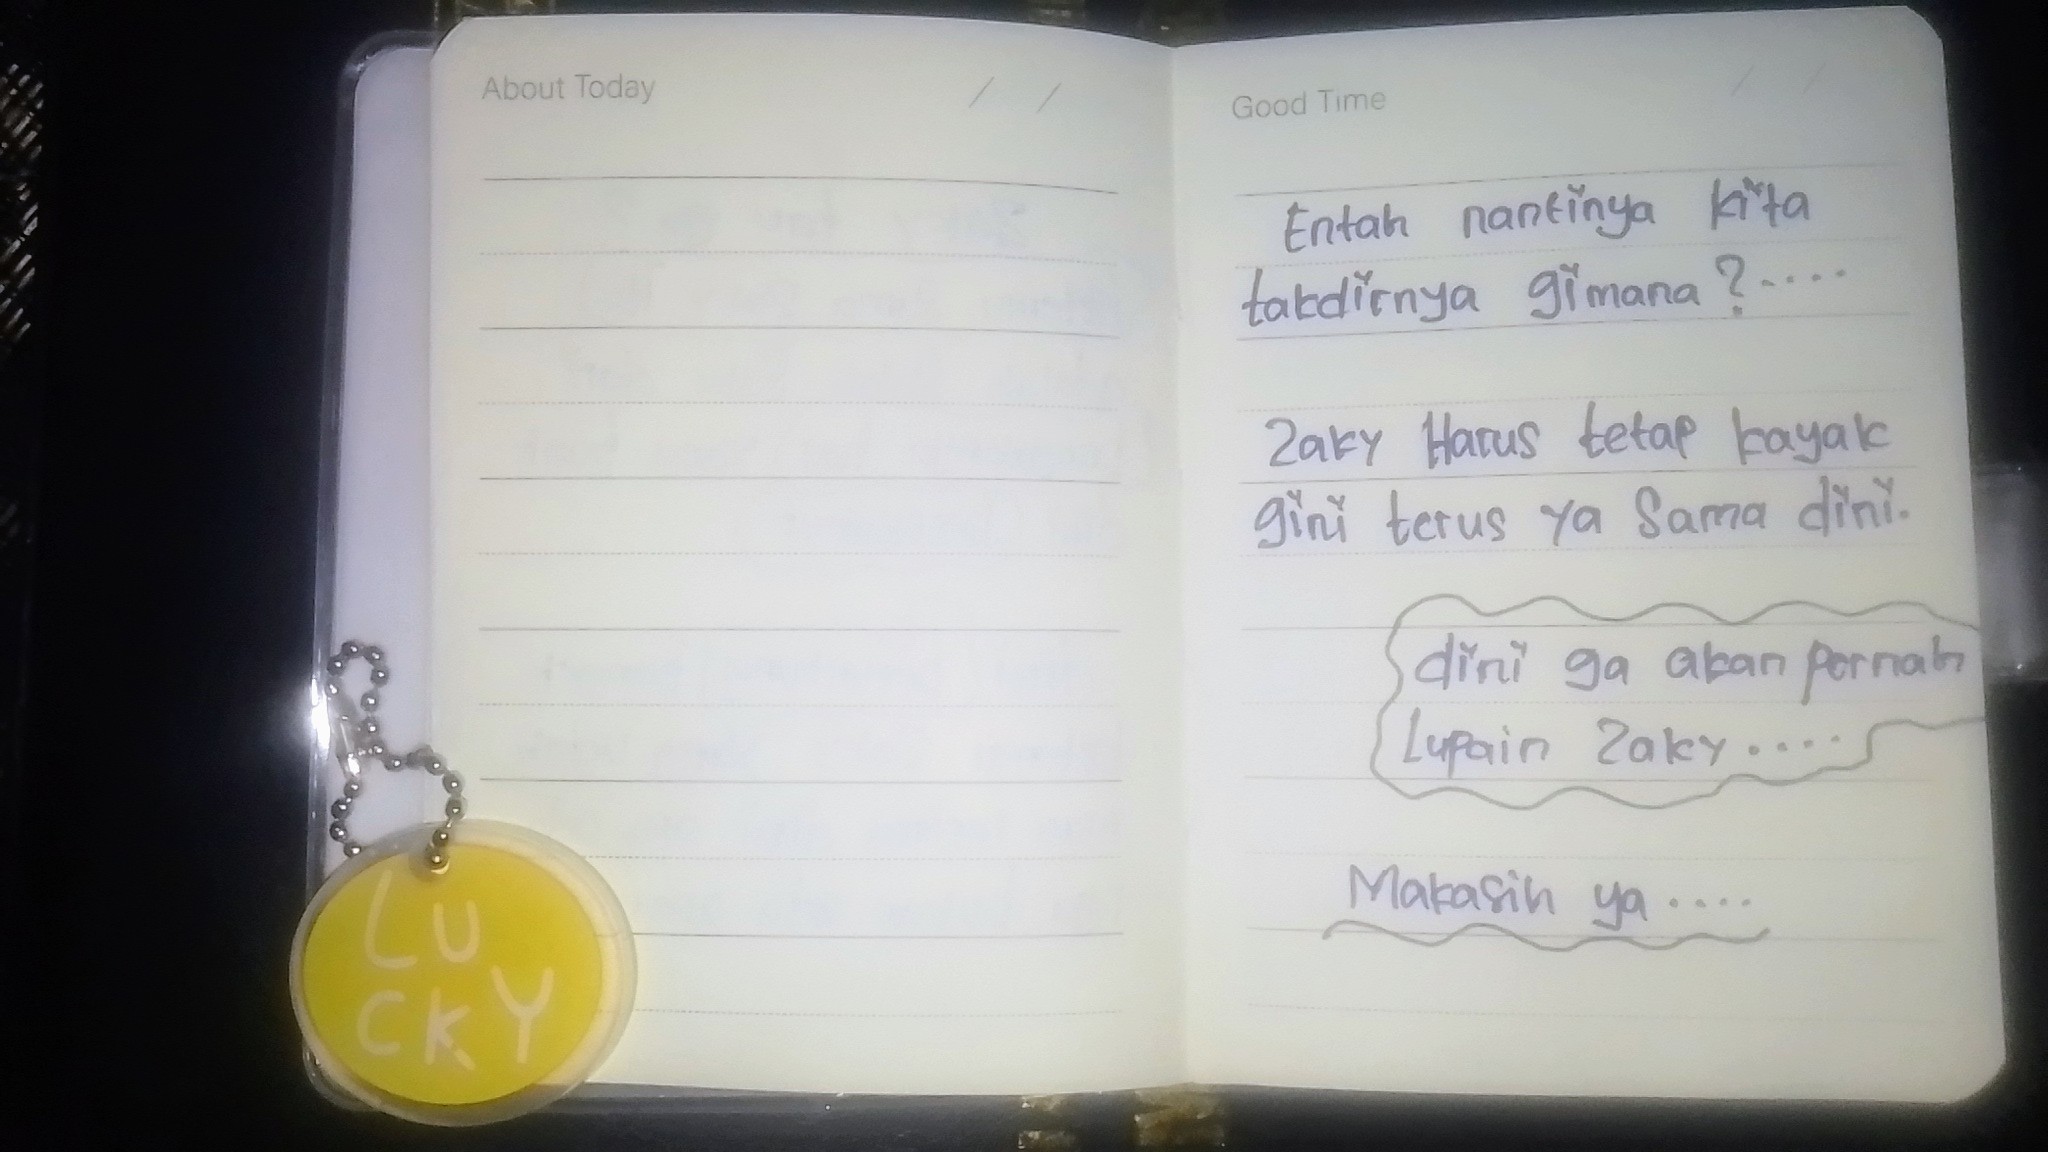 About Today / /
Good Time / /
Entah nantinya kita
takdirnya gimana ?....
Zaky Harus tetap kayak
gini terus ya Sama dini.
dini ga akan pernah
Lupain Zaky ....
Makasih ya ....
LU
CKY